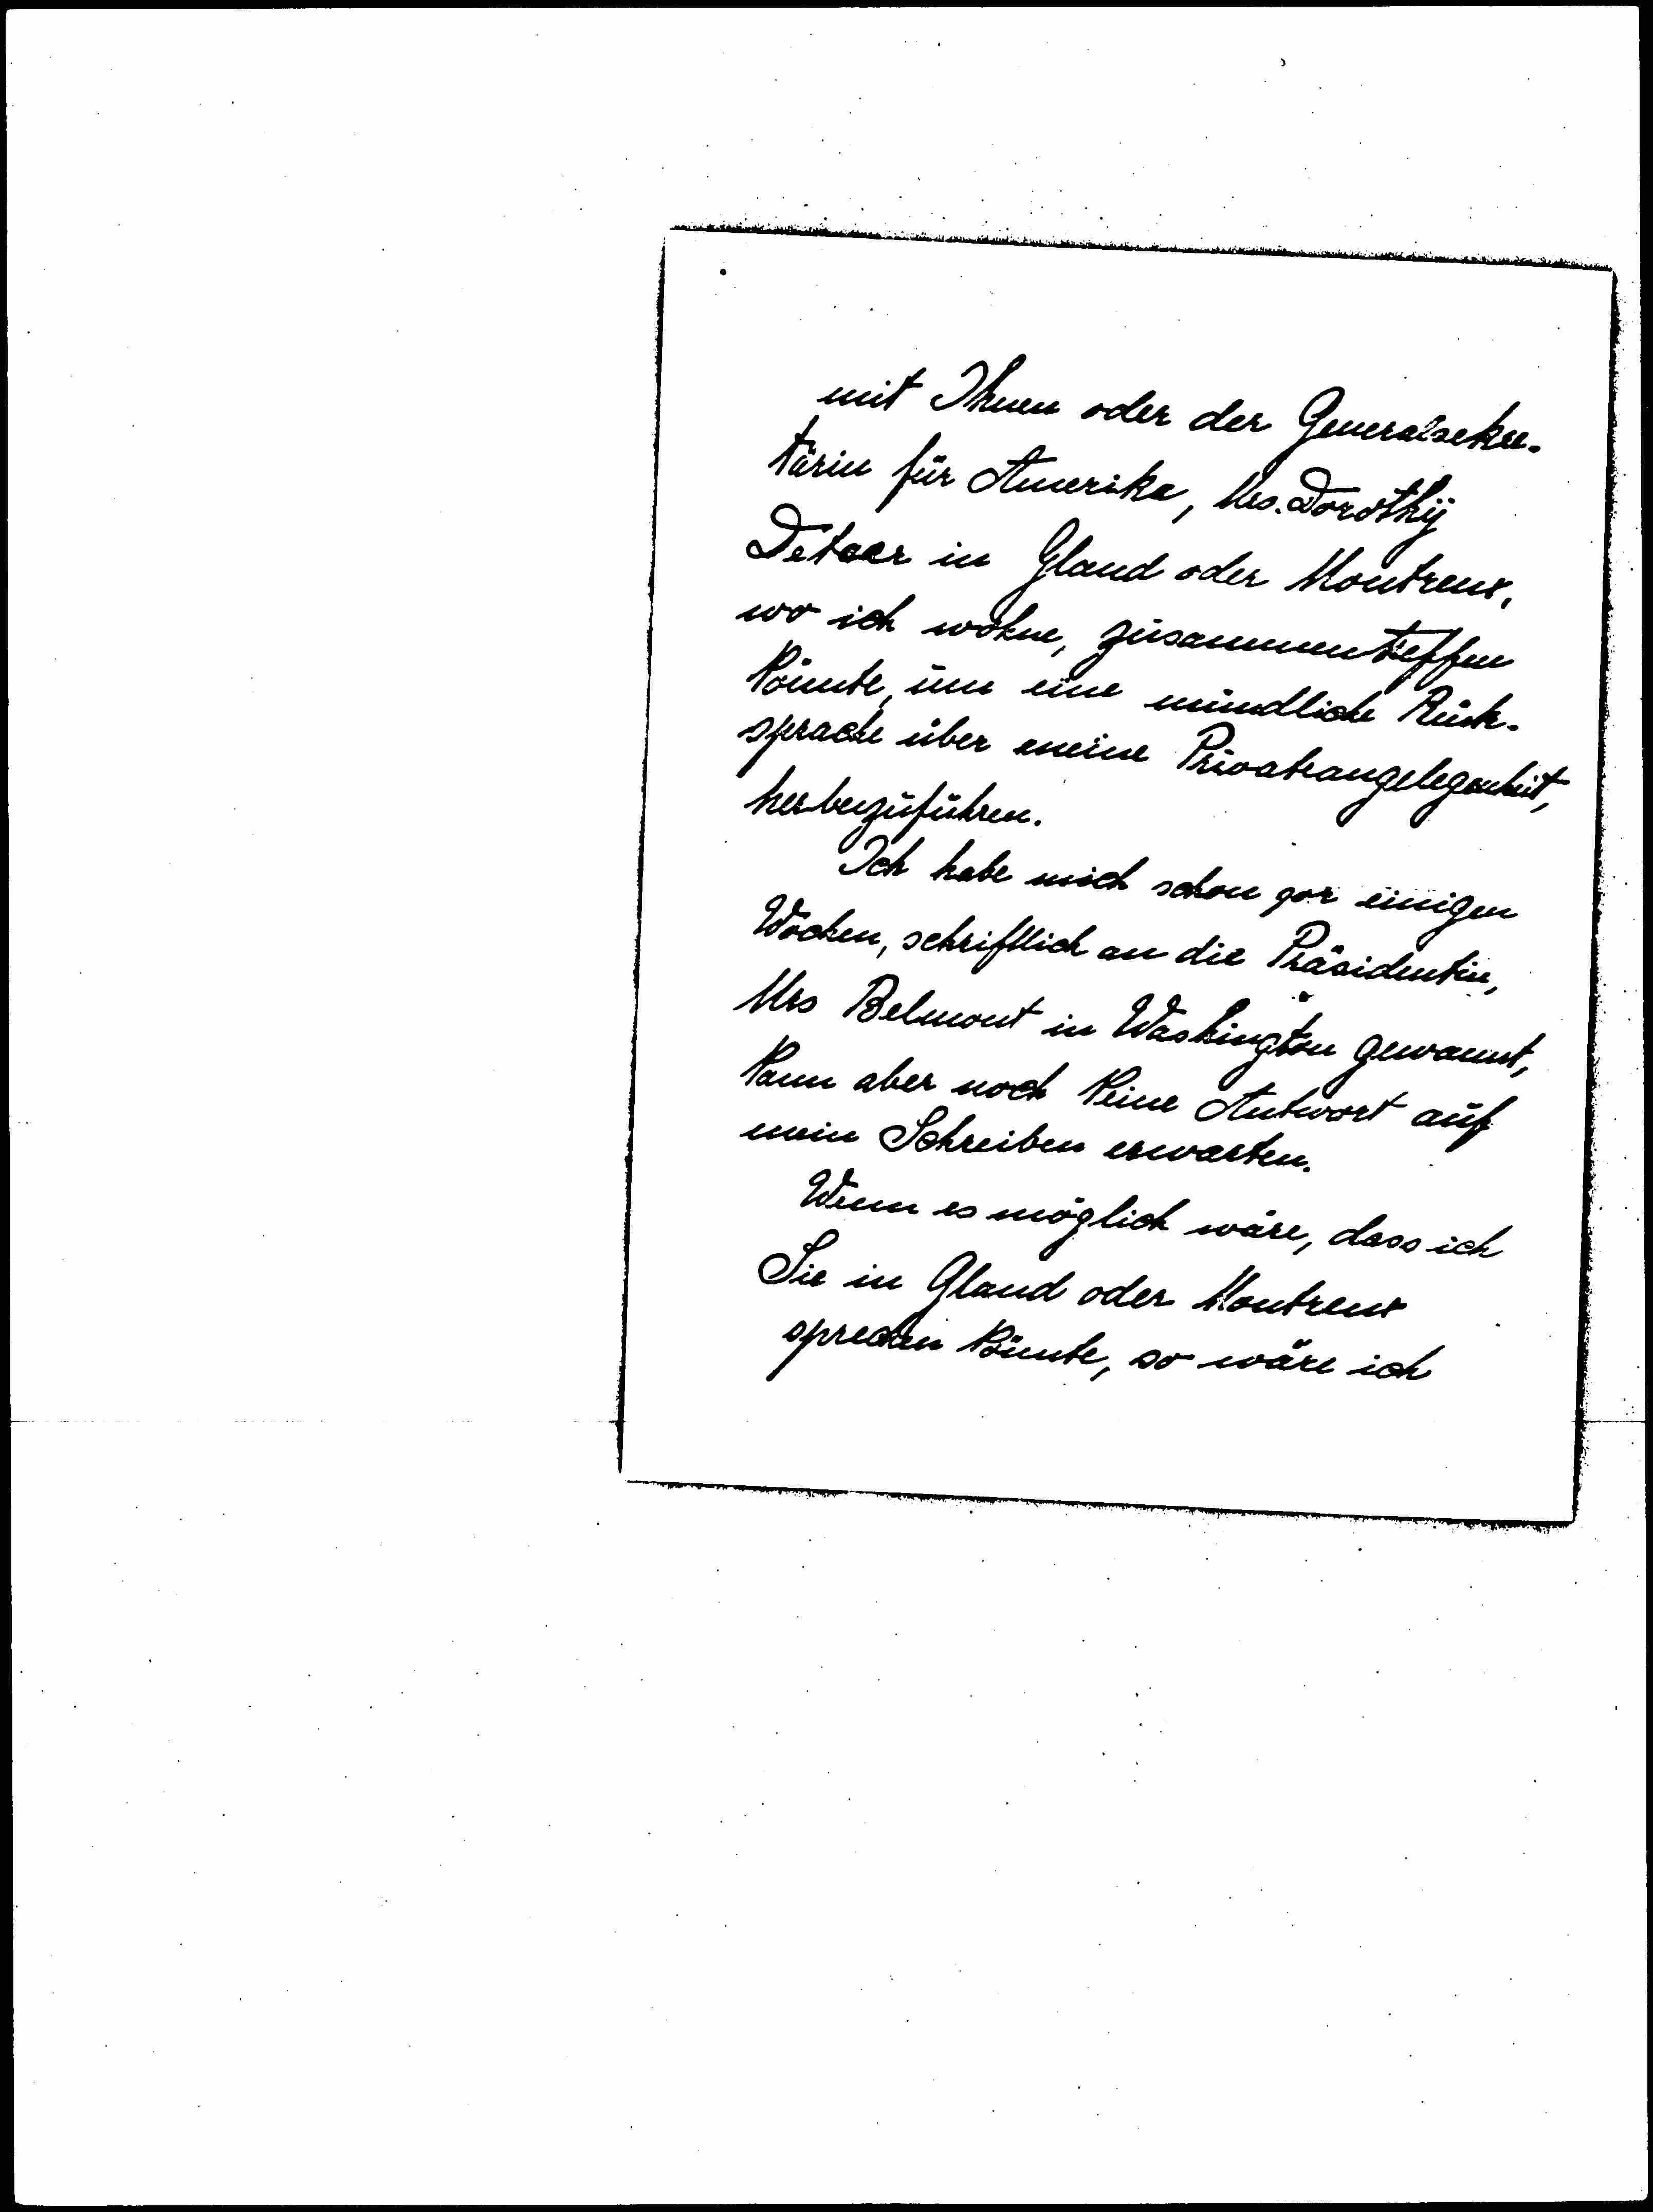 mit Ihnen oder der Generalsekre-
tärin für Amerika, Mrs. Dorothy
Detzer in Gland oder Montreux,
wo ich wohne, zusammentreffen
könnte, um eine mündliche Rück-
sprache über meine Privatangelegenheit,
herbeizuführen.
Ich habe mich schon vor einigen
Wochen, schriftlich an die Präsidentin,
Mrs Belmont in Washington gewannt,
kann aber noch keine Antwort auf
mein Schreiben erwarten.
Wenn es möglich wäre, dass ich
Sie in Gland oder Montreux
sprechen könnte, so wäre ich